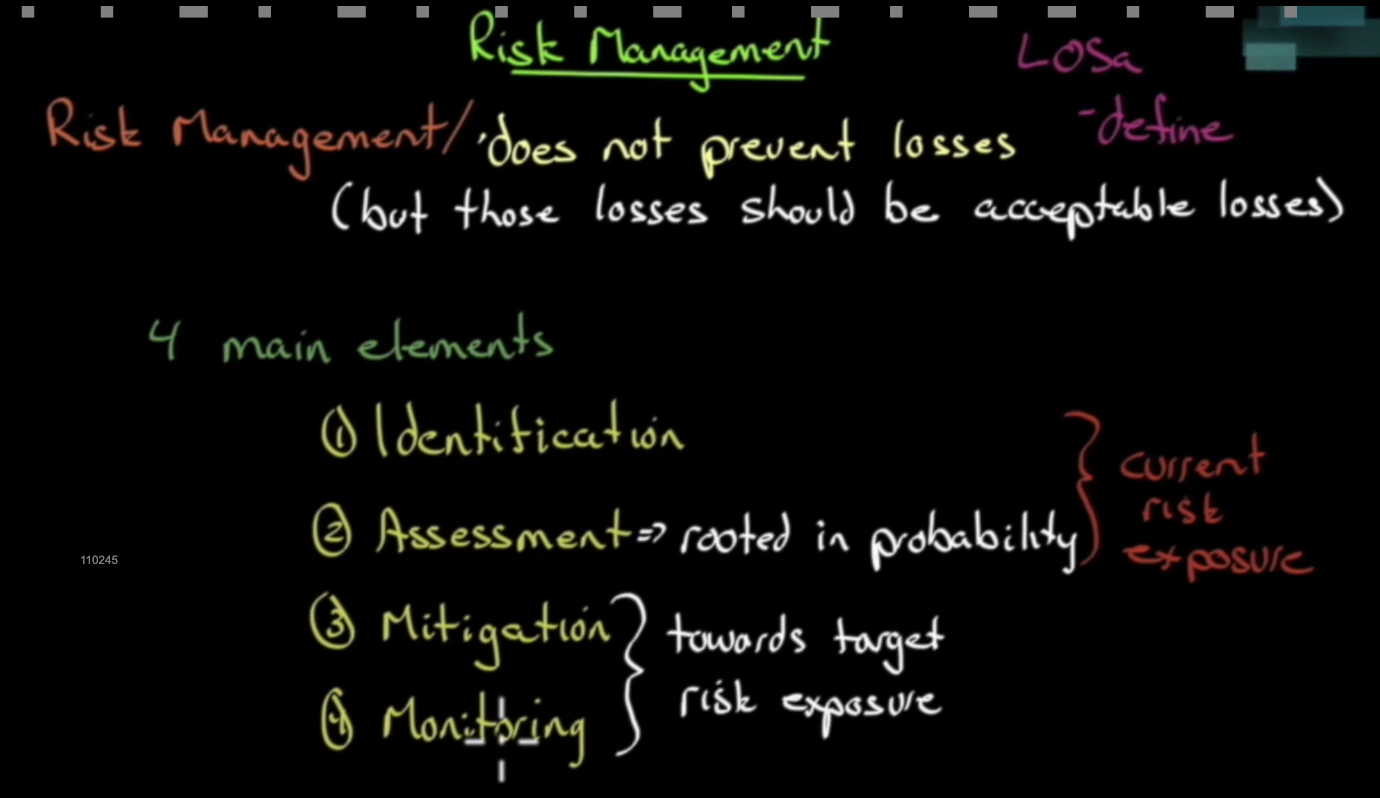 Risk Management
LOSa
-define
Risk Management/ does not prevent losses
(but those losses should be acceptable losses)
4 main elements
① Identification
② Assessment => rooted in probability
current
risk
exposure
③ Mitigation
④ Monitoring
towards target
risk exposure
110245